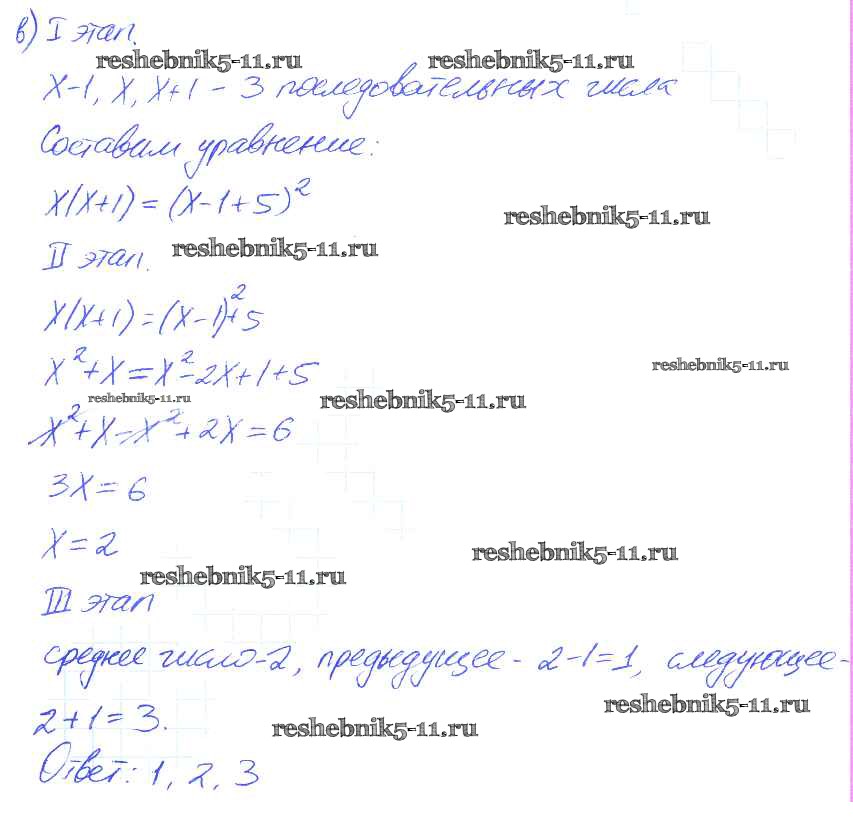 в) I этап.
reshebnik5-11.ru reshebnik5-11.ru
x-1, x, x+1 - 3 последовательных числа
Составим уравнение:
x(x+1)=(x-1+5)²
reshebnik5-11.ru
II этап. reshebnik5-11.ru
x(x+1)=(x-1)²+5
x²+x=x²-2x+1+5
reshebnik5-11.ru
reshebnik5-11.ru reshebnik5-11.ru
x²+x-x²+2x=6
3x=6
x=2
reshebnik5-11.ru
reshebnik5-11.ru
III этап
среднее число-2, предыдущее - 2-1=1, следующее -
reshebnik5-11.ru
2+1=3.
reshebnik5-11.ru
Ответ: 1, 2, 3